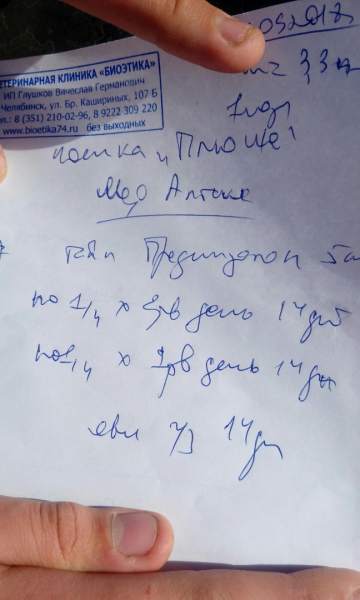 2017
ВЕТЕРИНАРНАЯ КЛИНИКА «БИОЭТИКА»
ИП Глушков Вячеслав Германович
Челябинск, ул. Бр. Кашириных, 107 Б
тел.: 8 (351) 210-02-96, 8 9222 309 220
www.bioetika74.ru без выходных
1 год
кошка „Плюше"
Мед Аптека
табл Преднизолон 5
по 1/4 х 2 р в день 14 дн
по 1/4 х 1 р в день 14 дн
явл ч/з 14 дн